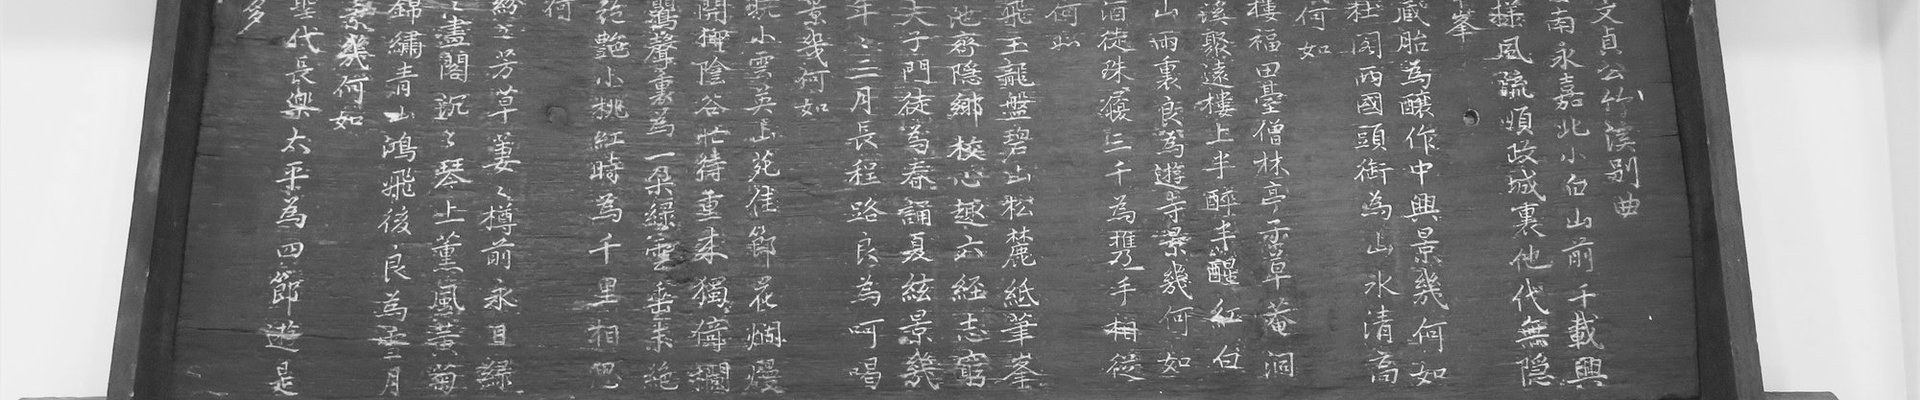 文貞公竹溪別曲
南永嘉北小白山前千載興
樣風流順政城裏他代無隱
峯
藏胎為釀作中興景幾何如
杜閣兩國頭銜為山水清高
何如
樓福田臺僧林亭子草菴洞
溪聚遠樓上半醉半醒紅白
山雨裏良為遊寺景幾何如
酒徒珠履三千為携手相從
何如
飛玉龍盤碧山松麓紙筆峯
池齊隱鄉校心趣六經志窮
夫子門徒為春誦夏絃景幾
年々三月長程路良為呵喝
景幾何如
小雲英山苑佳節花爛熳
開柳陰谷忙待重來獨倚欄
鶯聲裏為一朶綠雲垂未絕
絕艶小桃紅時為千里相思
何
紛々芳草萋々樽前永日綠
畫閣沉々琴上薰風黃菊
錦繡青山鴻飛後良為雪月
景幾何如
聖代長樂太平為四節遊是
多